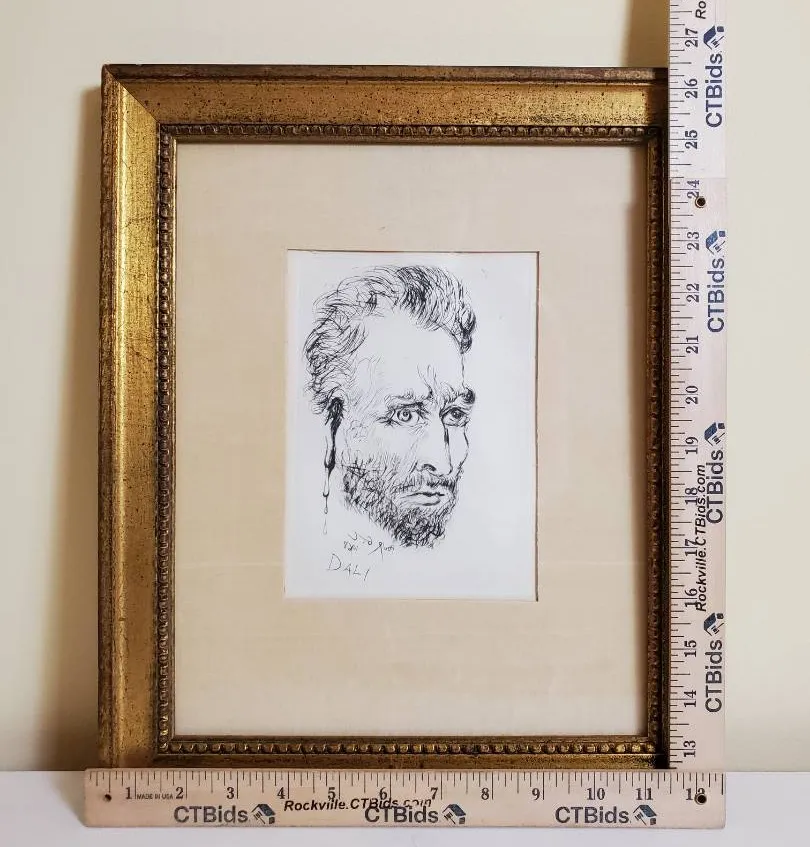 DALI
27
26
CTBids
25
24
23
CTBids
22
21
20
19
CTBids
18
Rockville.CTBids.com
17
16
15
CTBids
14
13
1 MADE IN USA 2 3 4 5 6 7 8 9 10 11 12
Rockville.CTBids.com
CTBids CTBids CTBids